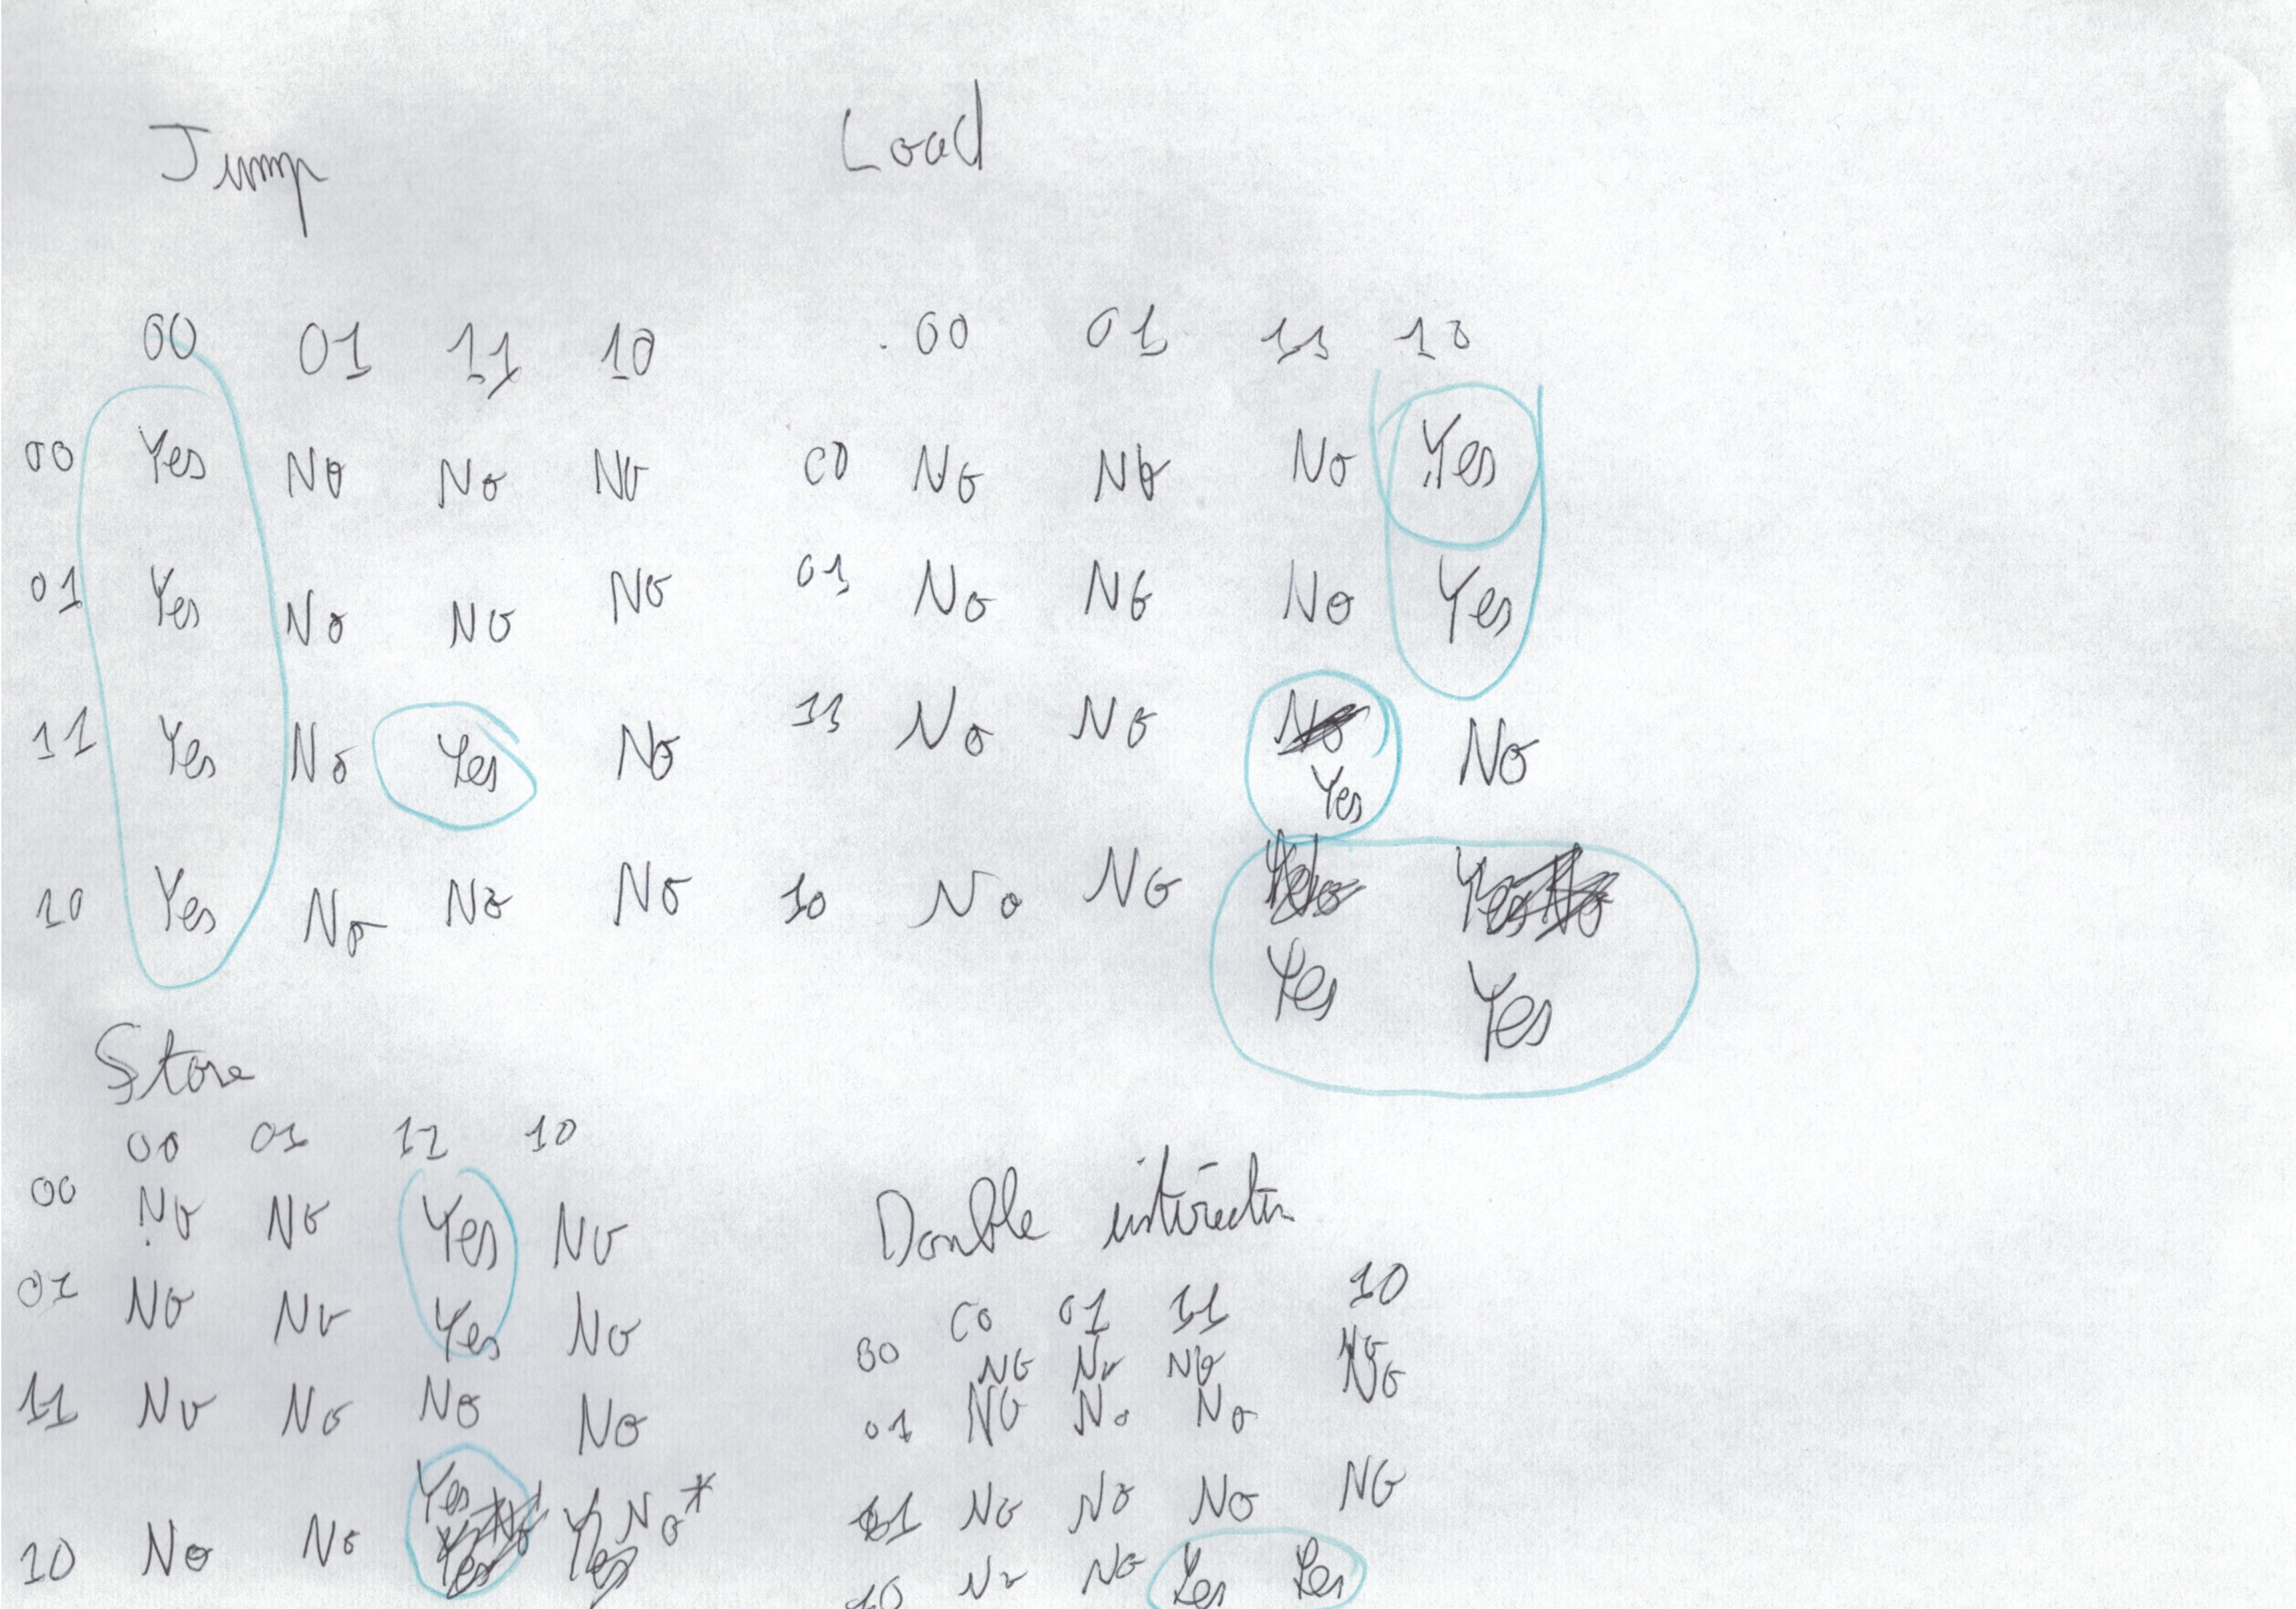 Jump
00 01 11 10
00 Yes No No No
01 Yes No No No
11 Yes No Yes No
10 Yes No No No
Load
00 01 11 10
00 No No No Yes
01 No No No Yes
11 No No No No
Yes
10 No No
Yes Yes
Store
00 01 11 10
00 No No Yes No
01 No No Yes No
11 No No No No
Yes
10 No No Yes Yes No*
Double
00 01 11 10
00 No No No No
01 No No No No
11 No No No No
10 No No Yes Yes